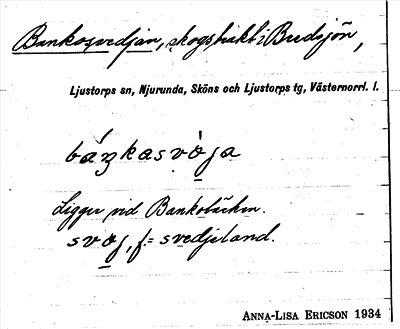 Bankosvedjan, skogstrakt i Bredsjön,
Ljustorps sn, Njurunda, Sköns och Ljustorps tg, Västernorrl. l.
báŋkasvòja
Ligger vid Bankobäcken.
svoj, f. = svedjeland.
ANNA-LISA ERICSON 1934